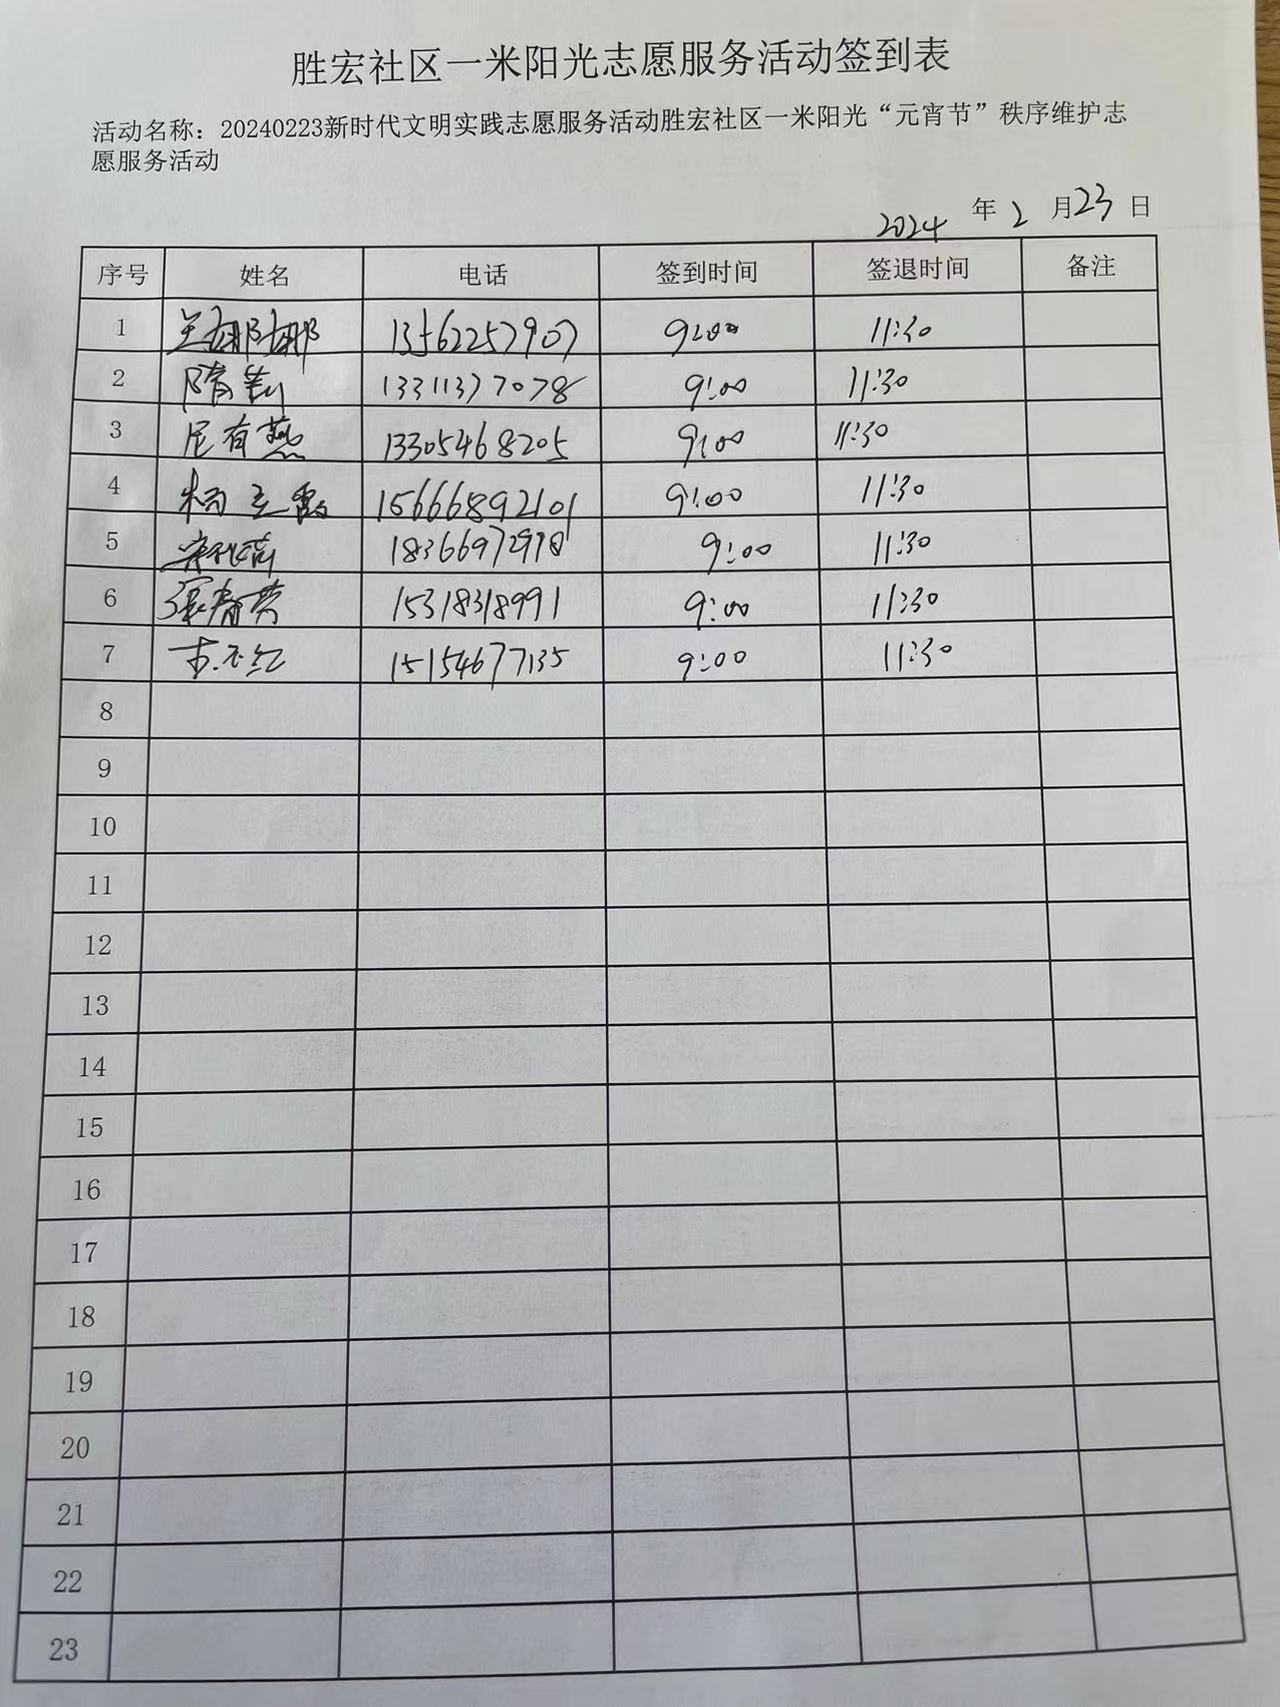 胜宏社区一米阳光志愿服务活动签到表
活动名称：20240223新时代文明实践志愿服务活动胜宏社区一米阳光“元宵节”秩序维护志
愿服务活动
2024 年 2 月 23 日
序号 姓名 电话 签到时间 签退时间 备注
1 王娜娜 13562257907 9:00 11:30
2 隋 13311377078 9:00 11:30
3 尼有燕 13305468205 9:00 11:30
4 杨立霞 15666892101 9:00 11:30
5 9:00 11:30
6 张春芳 15318318991 9:00 11:30
7 15154677135 9:00 11:30
8
9
10
11
12
13
14
15
16
17
18
19
20
21
22
23